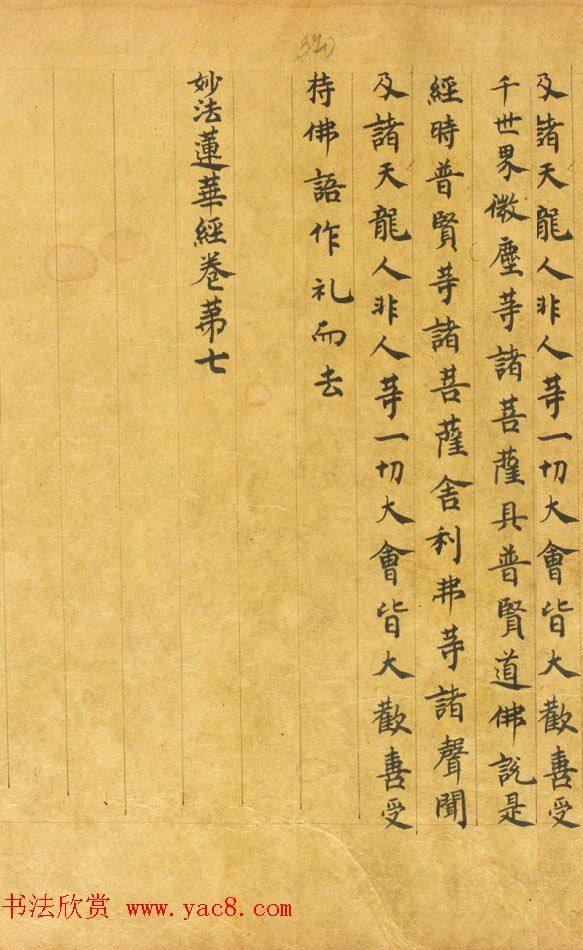 及諸天龍人非人等一切大會皆大歡喜受
千世界微塵等諸菩薩具普賢道佛說是
經時普賢等諸菩薩舍利弗等諸聲聞
及諸天龍人非人等一切大會皆大歡喜受
持佛語作礼而去
妙法蓮華經卷苐七
320
书法欣赏 www.yac8.com